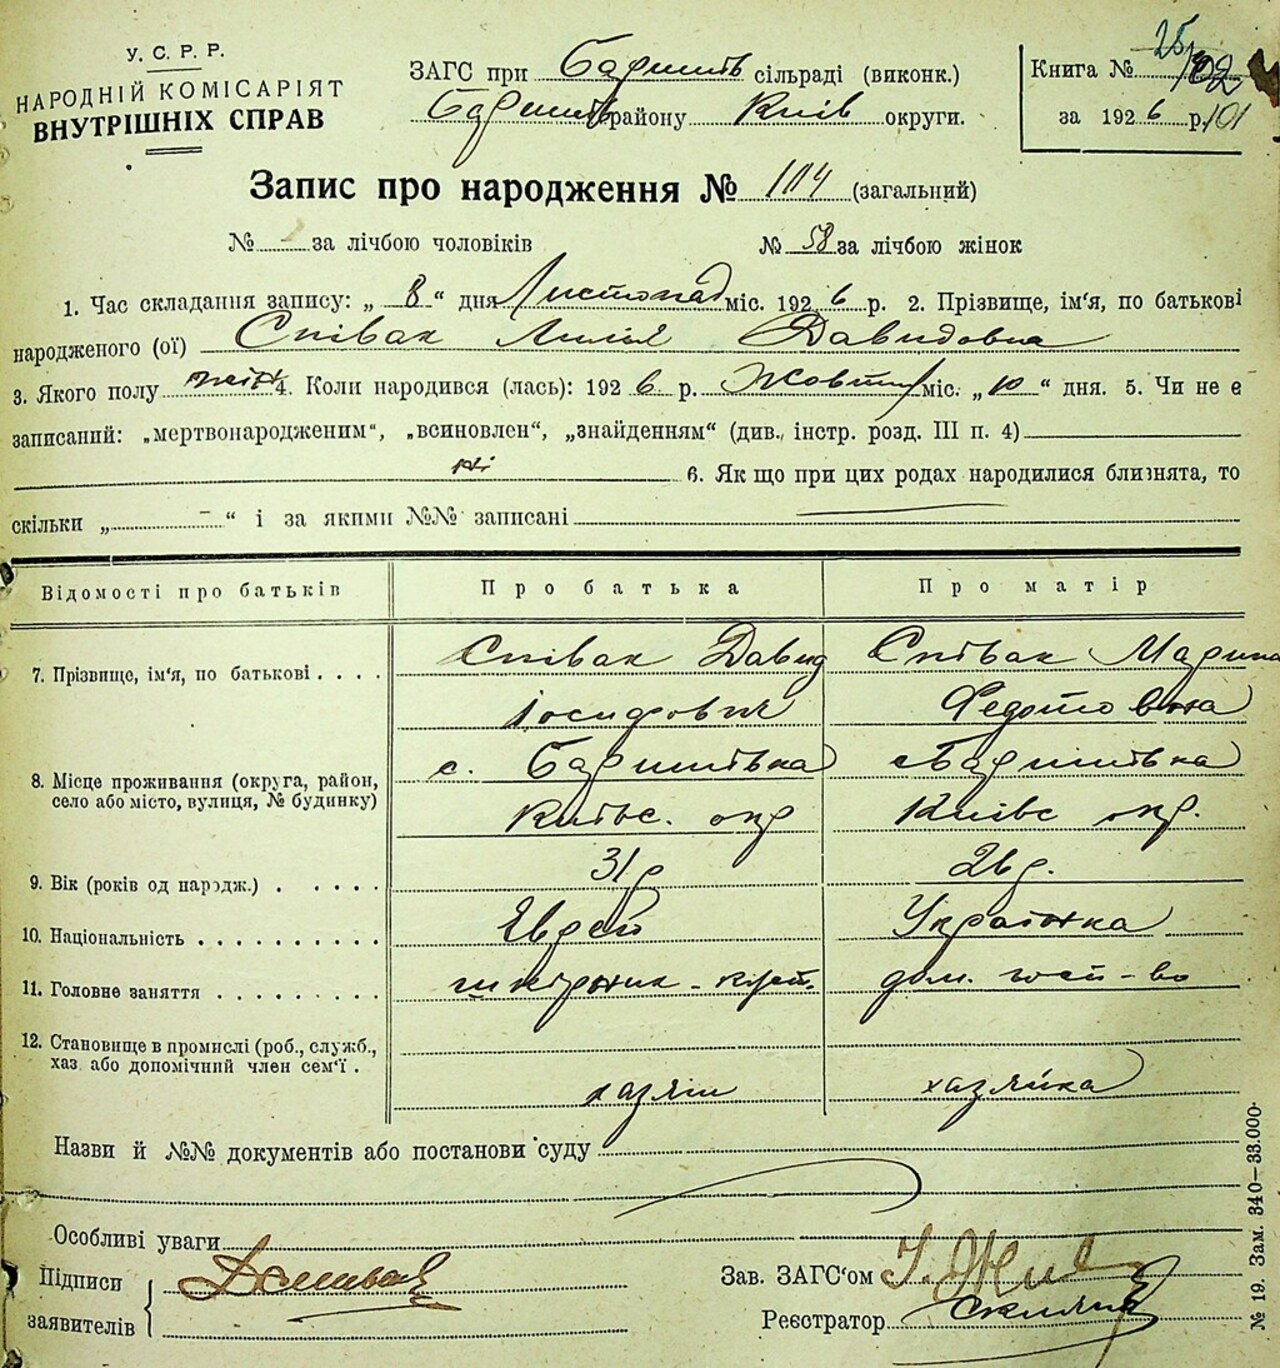 У. С. Р. Р.
НАРОДНІЙ КОМІСАРІЯТ
ВНУТРІШНІХ СПРАВ
ЗАГС при Баришів сільраді (виконк.)
Баришів району Київ округи.
Книга № 25/102
за 1926 р. 101
Запис про народження № 114 (загальний)
№ - за лічбою чоловіків № 58 за лічбою жінок
1. Час складання запису: „ 8 “ дня Листопад міс. 1926 р. 2. Прізвище, ім'я, по батькові
народженого (ої) Співак Лилія Давидовна
3. Якого полу жін 4. Коли народився (лась): 1926 р. Жовтня міс. „ 10 “ дня. 5. Чи не є
записаний: „мертвонародженим“, „всиновлен“, „знайденням“ (див. інстр. розд. III п. 4)
ні 6. Як що при цих родах народилися близнята, то
скільки „ - “ і за якими №№ записані
Відомості про батьків Про батька Про матір
7. Прізвище, ім'я, по батькові . . . . Співак Давид Співак Марина
Іосифович Федотовна
8. Місце проживання (округа, район, с. Баришівка с. Баришівка
село або місто, вулиця, № будинку) Київс. окр Київс окр.
9. Вік (років од народж.) . . . . . 31 р 26 р.
10. Національність . . . . . . . . . . Єврей Українка
11. Головне заняття . . . . . . . . . дом. госп-во
12. Становище в промислі (роб., служб.,
хаз або допомічний член сем'ї . хазяін хазяйка
Назви й №№ документів або постанови суду
Особливі уваги
Підписи
заявителів
Зав. ЗАГС'ом
Реєстратор
№ 19. Зам. 340—33.000.